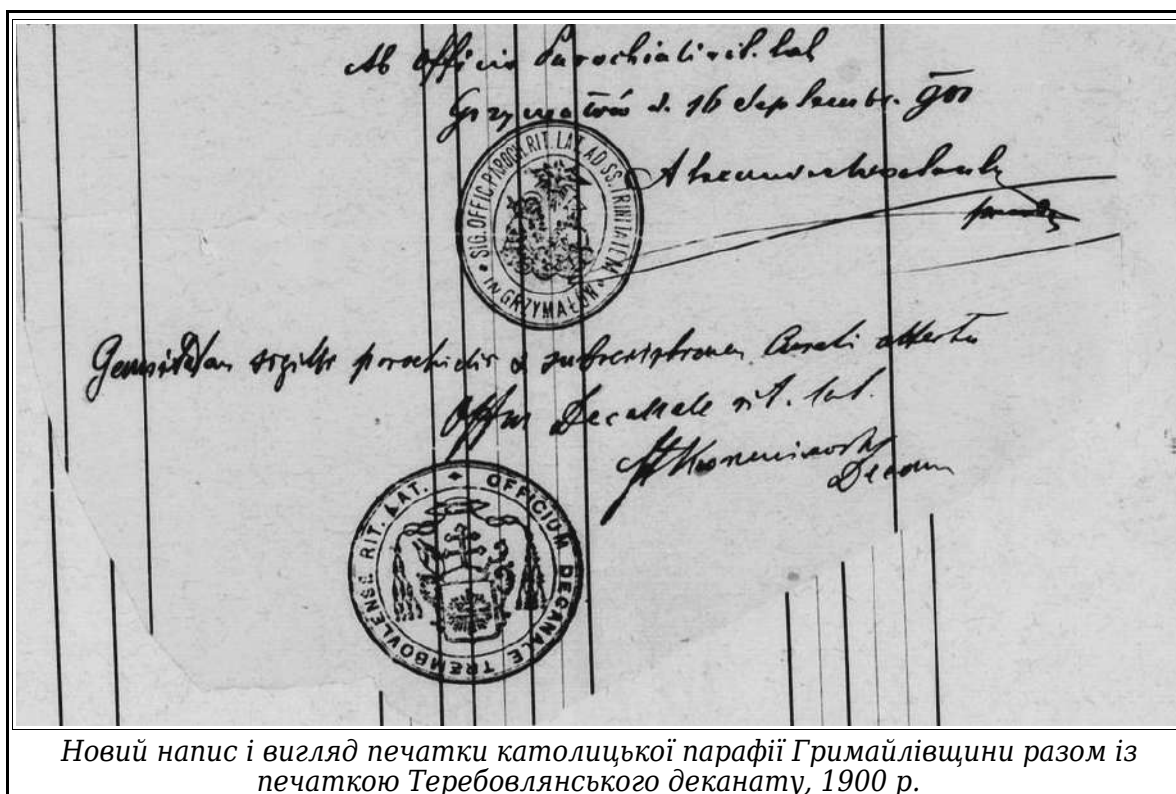 Ab Officio Parochiali rit. lat
Grzymałów d. 16 Septembr. 900
SIG. OFFIC. PAROCH. RIT. LAT. AD SS. TRINITATEM
• IN GRZYMAŁÓW •
sigilli parochialis & subscriptionem Curati
Officium Decanale rit. lat.
Decan
OFFICIUM DECANALE TREMBOVLENSE RIT. LAT.
Новий напис і вигляд печатки католицької парафії Гримайлівщини разом із
печаткою Теребовлянського деканату, 1900 р.